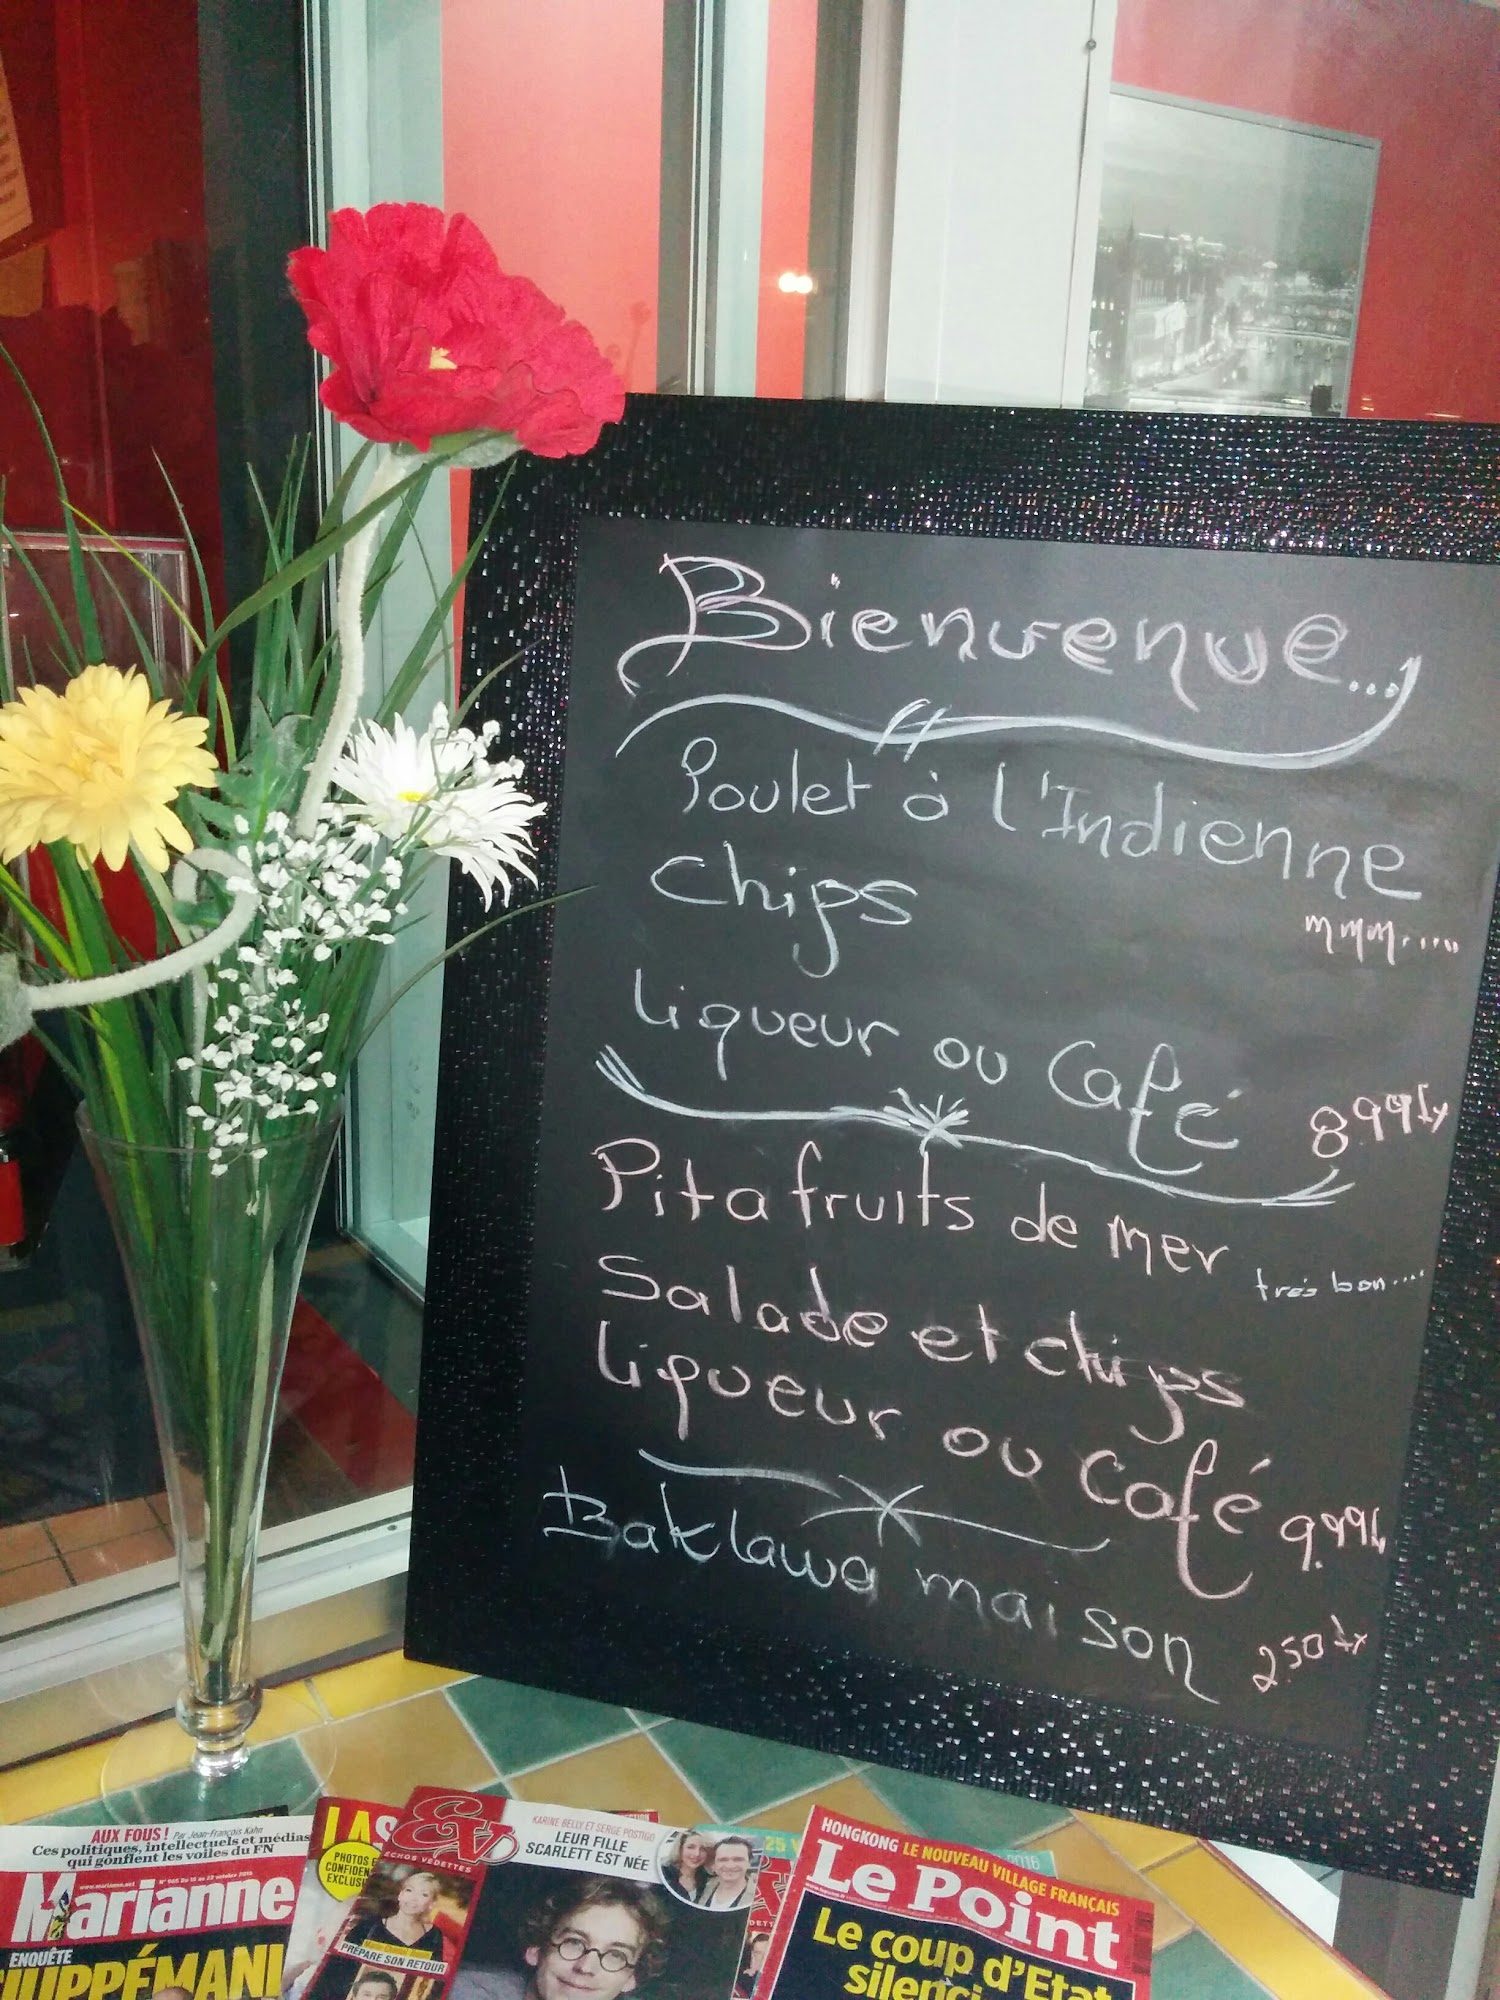 Bienvenue...
Poulet à l'Indienne
Chips
mmm.....
Liqueur ou Café
8.99tx
Pita fruits de mer
très bon....
Salade et chips
Liqueur ou Café
9.99tx
Baklawa maison
2.50tx
AUX FOUS! Par Jean-François Kahn
Ces politiques, intellectuels et médias
qui gonflent les voiles du FN
www.marianne.net
Marianne
ENQUÊTE
LAS
PHOTOS
EV
ÉCHOS VEDETTES
PRÉPARE SON RETOUR
KARINE BELLY ET SERGE POSTIGO
LEUR FILLE
SCARLETT EST NÉE
25
2016
HONGKONG LE NOUVEAU VILLAGE FRANÇAIS
Le Point
Le coup d'Etat